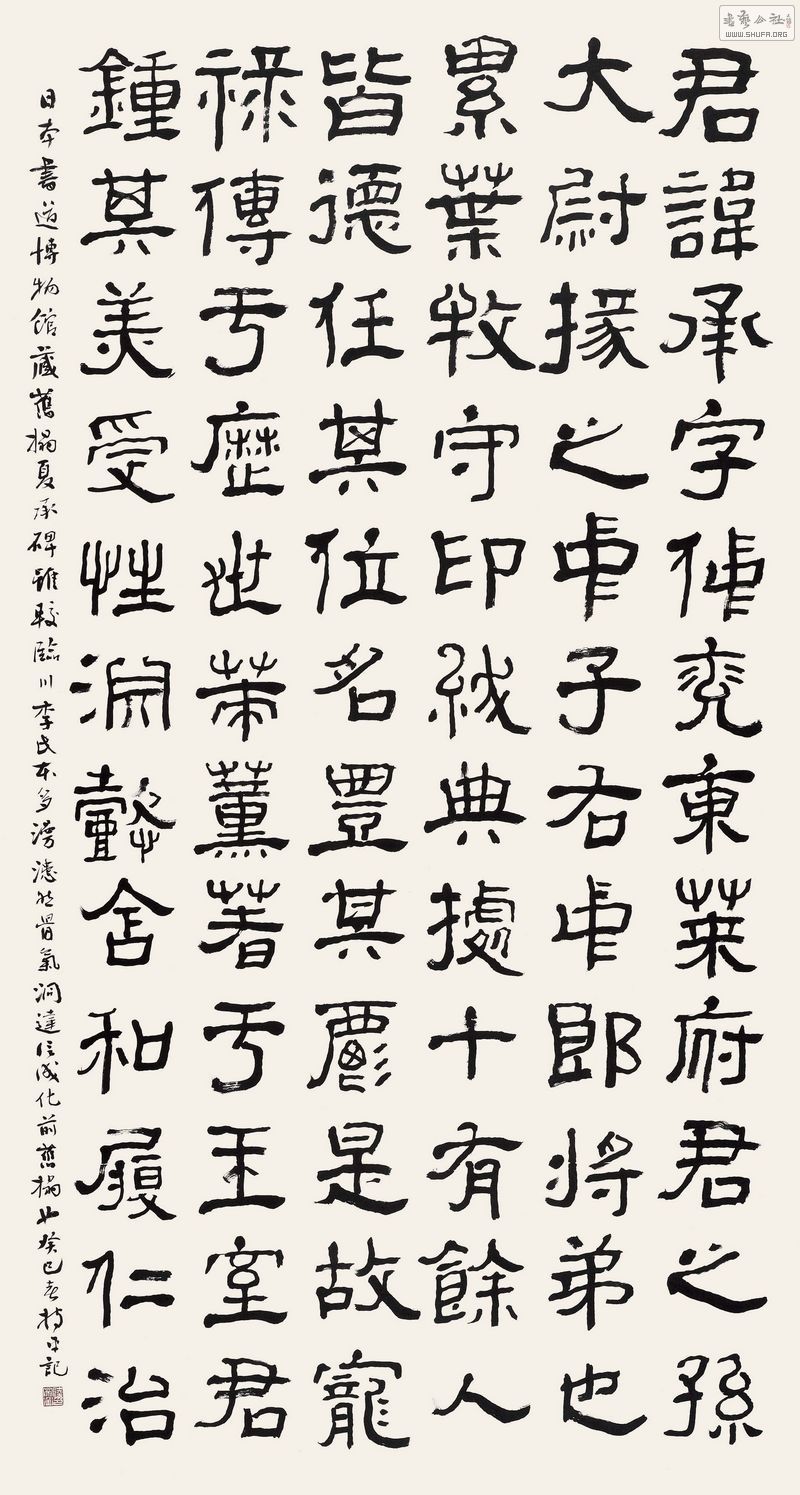 君諱承字仲兖東萊府君之孫
大尉掾之中子右中郎將弟也
累葉牧守印紱典據十有餘人
皆德任其位名豐其爵是故寵
祿傳于歷世策薰著于王室君
鍾其美受性淵懿含和履仁治
日本書道博物館藏舊搨夏承碑雖較臨川李氏本多漫漶然骨氣洞達信成化前舊搨也癸巳春持平記
書藝公社
WWW.SHUFA.ORG